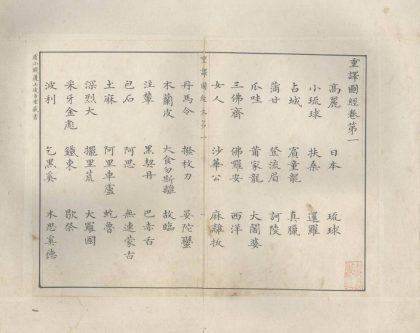 重譯圖經卷第一
高麗 日本 琉球
小琉球 扶桑 暹羅
占城 賓童龍 真臘
蒲甘 登流眉 訶陵
瓜哇 莆家龍 大闍婆
三佛齊 佛羅安 西洋
女人 沙華公 麻離拔
重譯圖經卷第一
丹馬令 撥枝刀 晏陀蠻
木蘭皮 大食勿斯離 故臨
注輦 黑契丹 巴赤吉
包石 阿思 無連蒙古
土麻 阿里車盧 蛇魯
深烈大 擺里荒 大羅國
采牙金彪 鐵東 歇祭
波利 乞黑奚 木思奚德